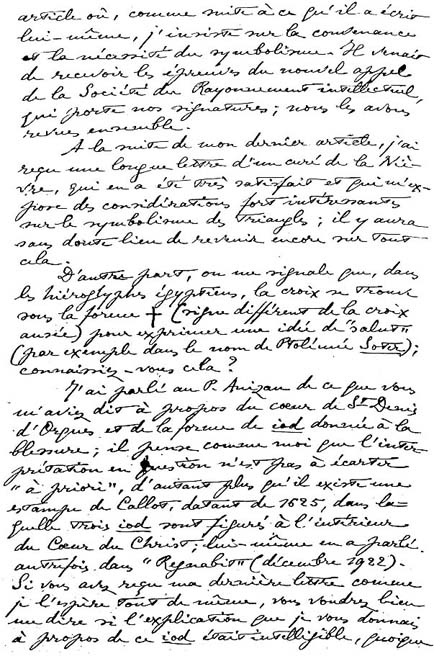 article où, comme suite à ce qu'il a écrit
lui-même, j'insiste sur la convenance
et la nécessité du symbolisme. Il venait
de recevoir les épreuves du nouvel appel
de la Société du Rayonnement intellectuel,
qui porte nos signatures ; nous les avons
revues ensemble.
À la suite de mon dernier article, j'ai
reçu une longue lettre d'un curé de la Niè-
vre, qui en a été très satisfait et qui m'ex-
pose des considérations fort intéressantes
sur le symbolisme des triangles ; il y aura
sans doute lieu de revenir encore sur tout
cela.
D'autre part, on me signale que, dans
les hiéroglyphes égyptiens, la croix se trouve
sous la forme † (signe différent de la croix
ansée) pour exprimer une idée de "salut"
(par exemple dans le nom de Ptolémée Soter) ;
connaissiez-vous cela ?
J'ai parlé au P. Anizan de ce que vous
m'aviez dit à propos du cœur de St Denis
d'Orques et de la forme de iod donnée à la
blessure ; il pense comme moi que l'inter-
prétation en question n'est pas à écarter
"à priori", d'autant plus qu'il existe une
estampe de Callot, datant de 1625, dans la-
quelle trois iod sont figurés à l'intérieur
du Cœur du Christ ; lui-même en a parlé
autrefois dans "Regnabit" (décembre 1922).
Si vous avez reçu ma dernière lettre comme
je l'espère tout de même, vous voudrez bien
me dire si l'explication que je vous donnais
à propos de ce iod était intelligible, quoique